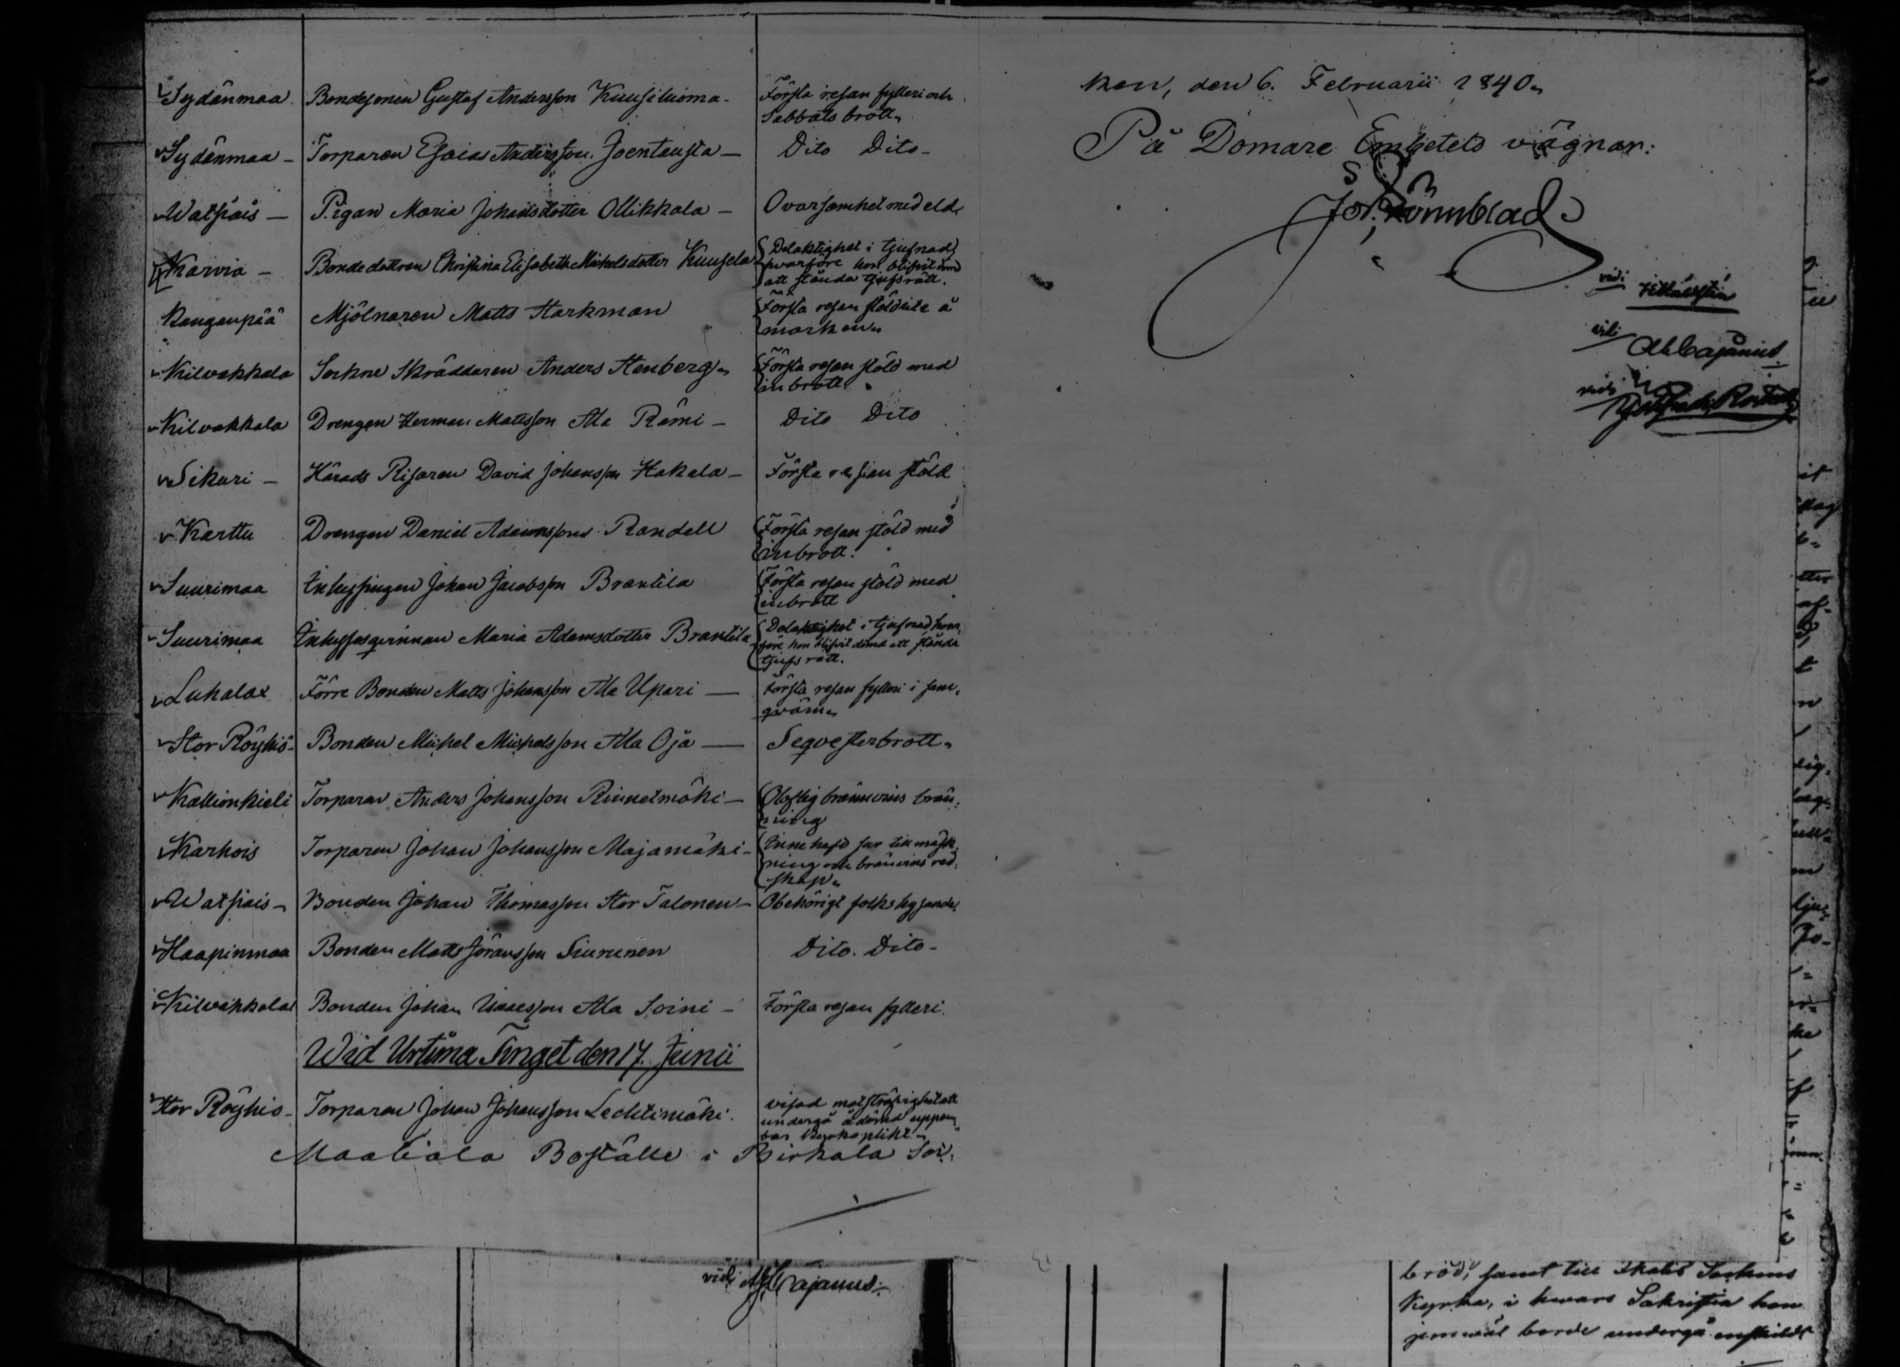 Sydänmaa Bondesonen Gustaf Andersson Kuusiluoma - Första resan fylleri och
Sabbats brott
Sydänmaa - Torparen Esaias Andersson Joentausta - Dito Dito -
Watsais - Pigan Maria Johansdotter Ollikkala - Ovarsamhet med eld
Karvia - Bondedottren Christina Elisabeth Michelsdotter Kuusela Delaktighet i tjufnad
hvarföre hon blifvit
att stånda tjufsrätt.
Kangenpää Mjölnaren Matts Starkman Första resan å
marken
Kilvakkala Sockne Skräddaren Anders Stenberg Första resan stöld med
inbrott
Kilvakkala Drengen Herman Mattsson Ala Rämi - Dito Dito
Sikuri - Härads Risaren David Johansson Hakala - Första resan stöld
Karttu Drengen Daniel Adamsson Randell Första resan stöld med
inbrott.
Suurimaa Inhysingen Johan Jacobsson Brantila Första resan stöld med
inbrott
Suurimaa Inhysesqvinnan Maria Adamsdotter Brantila Delaktighet i tjufnad hvar
före hon blifvit dömd att stånda
tjufs rätt.
Luhalax Förre Bonden Matts Johansson Ala Upari - Första resan fylleri i sam-
qväm
Stor Röyhiö - Bonden Michel Michelsson Ala Oja - Seqvesterbrott
Kallionkieli Torparen Anders Johansson Rinnetmäki - Oloflig brännvins brän-
ning
Karhois Torparen Johan Johansson Majamäki - Innehaft kar till mäsk-
ning och bränvins red-
skap
Watsais - Bonden Johan Thomasson Stor Talonen - Obehörigt folks hysande
Haapinmaa Bonden Matts Göransson Siurunen Dito. Dito -
Kilvakkala Bonden Johan Isaacsson Ala Soini - Första resan fylleri.
Wid Urtima Tinget den 17. Junii
Stor Röyhiö - Torparen Johan Johansson Lechtimäki. visad motsträfvighet att
undergå ådömd uppen-
bar Kyrkoplikt
Maatiala Boställe i Birkala Soc.
vidi Cajanus
ken, den 6. Februarii 1840
På Domare Embetets vägnar:
Jos. Rönnblad
vidi
vidi Cajanus
vidi
bröd, samt till Sockens
Kyrka, i hvars Sakristia han
jemväl borde undergå enskild